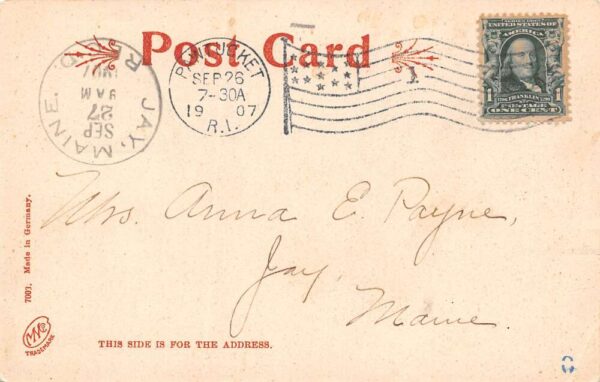 Post Card
PAWTUCKET
SEP 26
7-30A
19 07
R.I.
JAY, MAINE
SEP
27
AM
SERIES 1902
UNITED STATES OF AMERICA
1 1
FRANKLIN
POSTAGE
ONE CENT
Mrs. Anna E. Payne,
Jay,
Maine
7001. Made in Germany.
TRADEMARK
THIS SIDE IS FOR THE ADDRESS.